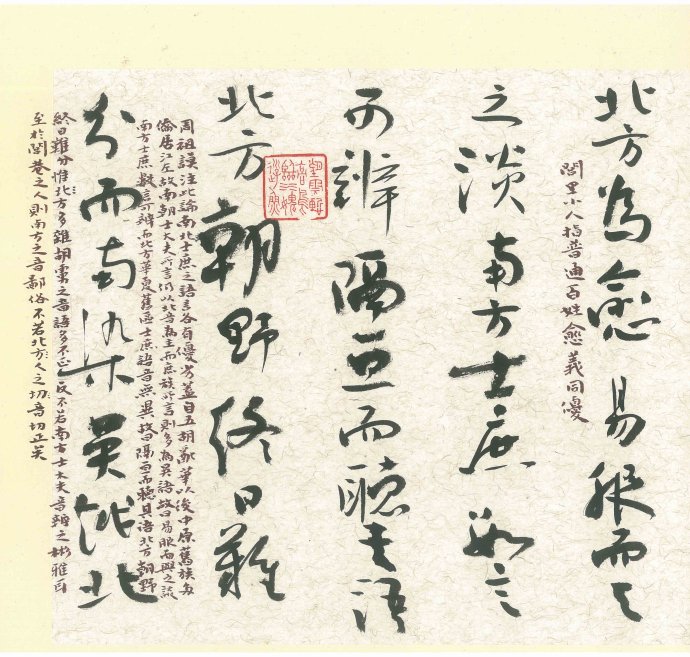 北方為愈易服而与
閭里小人指普通百姓愈義同優
之淡南方士庶數言
可辨隔亘而聽其語
北方朝野終日難
周祖謨注此論南北士庶之語言各有優劣蓋自五胡亂華以後中原舊族多
僑居江左故南朝士大夫所言仍以北音為主而庶族所言則多為吳語故曰易服而與之談
南方士庶數言可辨而北方華夏舊區士庶語音無異故曰隔亘而聽其語北方朝野
分而南染吳越北
終日難分惟北方多雜胡虜之音語多不正反不若南方士大夫音辭之彬雅耳
至於閭巷之人則南方之音鄙俗不若北方人之切音切正矣